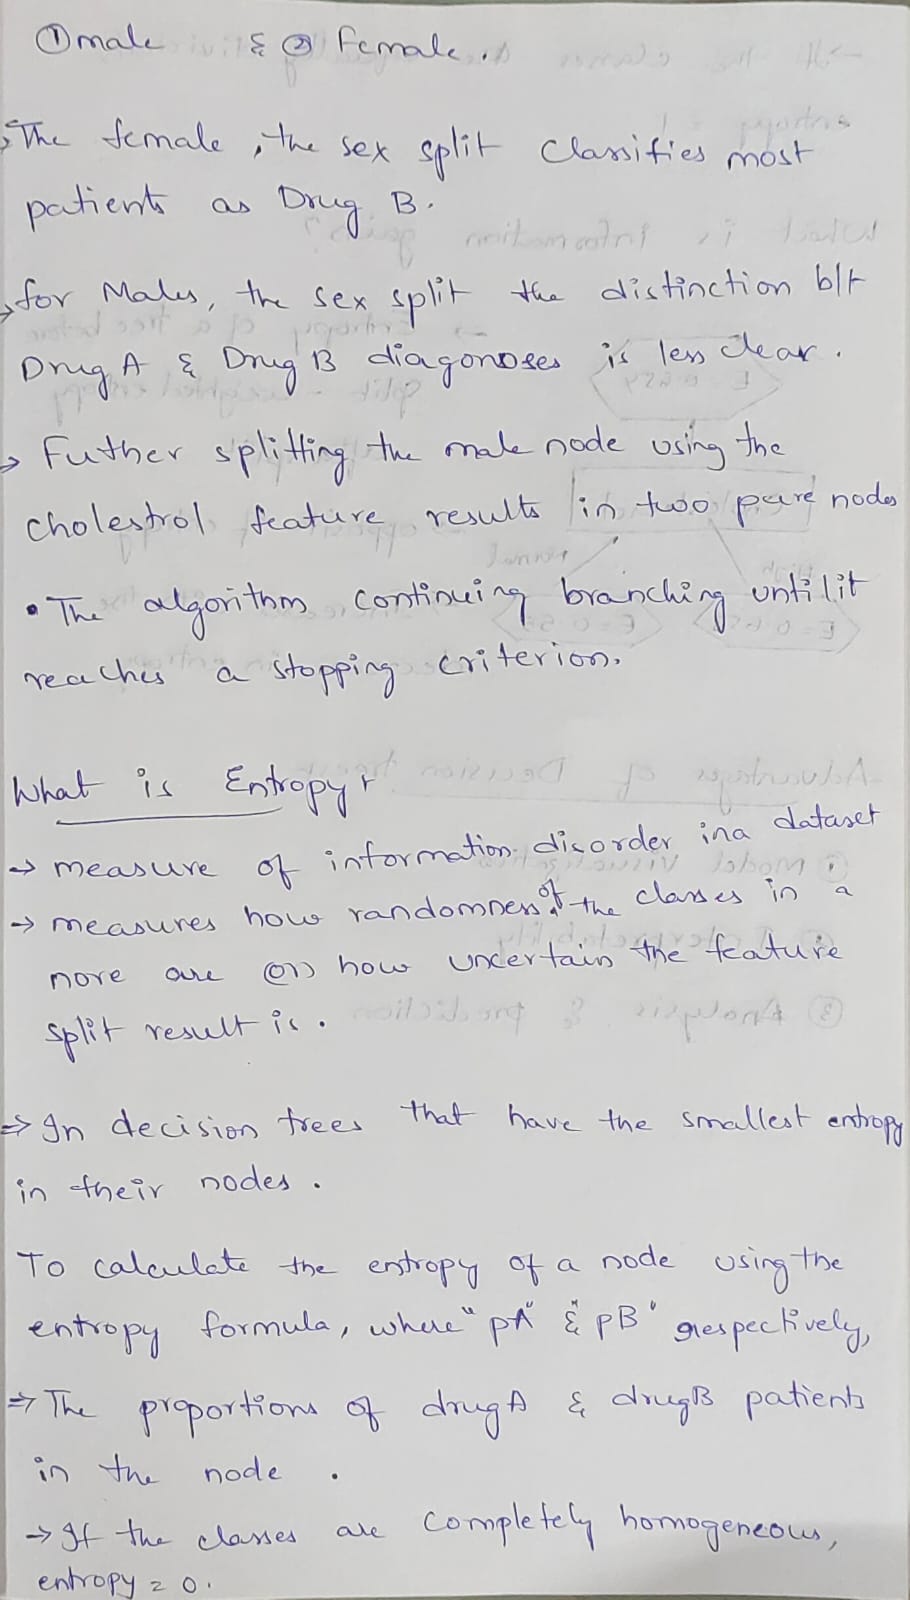 ① male & ② Female.
→ The female, the sex split Classifies most
patients as Drug B.
→ for Males, the sex split the distinction b/t
Drug A & Drug B diagonoses is less clear.
→ Futher splitting the male node using the
cholestrol feature results in two pure nodes
• The algorithm continuing branching until it
reaches a stopping criterion.
What is Entropy?
→ measure of information disorder in a dataset
→ measures how randomness of the classes in a
nore are (or) how uncertain the feature
split result is.
⇒ In decision trees that have the smallest entropy
in their nodes.
To calculate the entropy of a node using the
entropy formula, where "pA" & "pB" respectively,
⇒ The proportions of drug A & drug B patients
in the node.
→ If the classes are completely homogeneous,
entropy = 0.